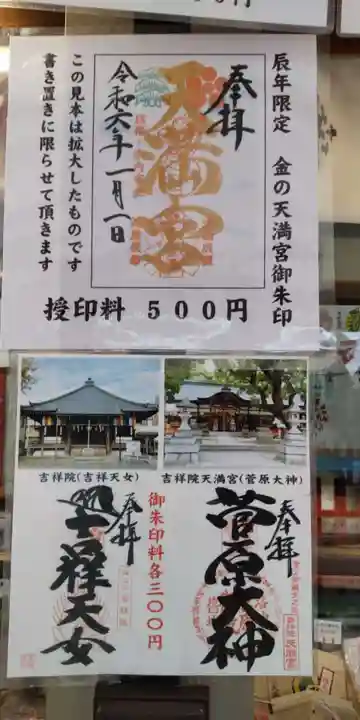 ００円
辰年限定　金の天満宮御朱印
奉拝
天満宮
令和六年一月一日
この見本は拡大したものです
書き置きに限らせて頂きます
授印料　５００円
吉祥院(吉祥天女)
吉祥院天満宮(菅原大神)
奉拝
菅原大神
御朱印料各三〇〇円
奉拝
吉祥天女